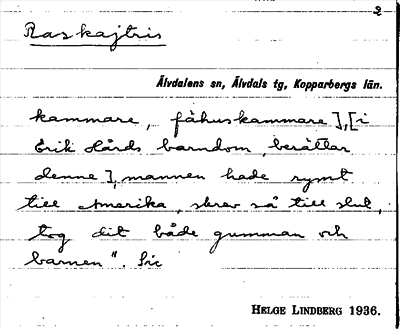 2
Raskajtris
Älvdalens sn, Älvdals tg, Kopparbergs län.
kammare, fähuskammare],[i
Erik Hårds barndom, berättar
denne], mannen hade rymt
till Amerika, skrev så till slut,
tog dit både gumman och
barnen". Sic
HELGE LINDBERG 1936.